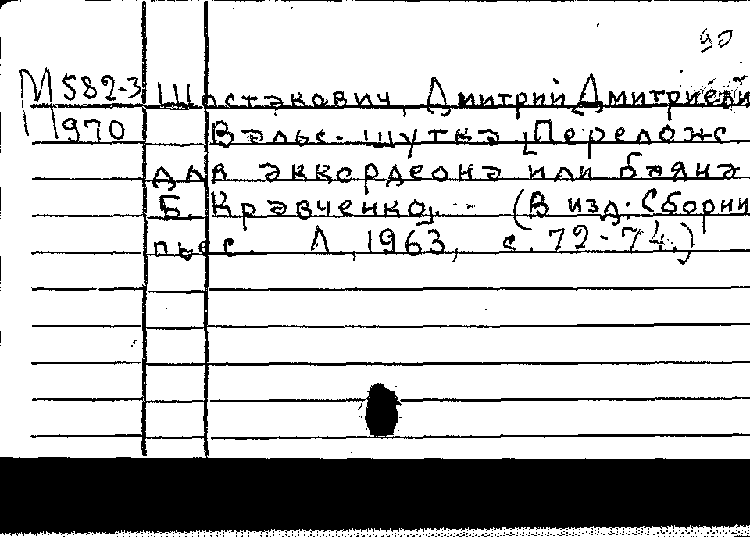 90
М 582-3 Шостакович, Дмитрий Дмитриеви
1970 Вальс-шутка [Перелож.
для аккордеона или баяна
Б. Кравченко]. - (В изд: Сборни
пьес. Л., 1963, с. 72-74.)